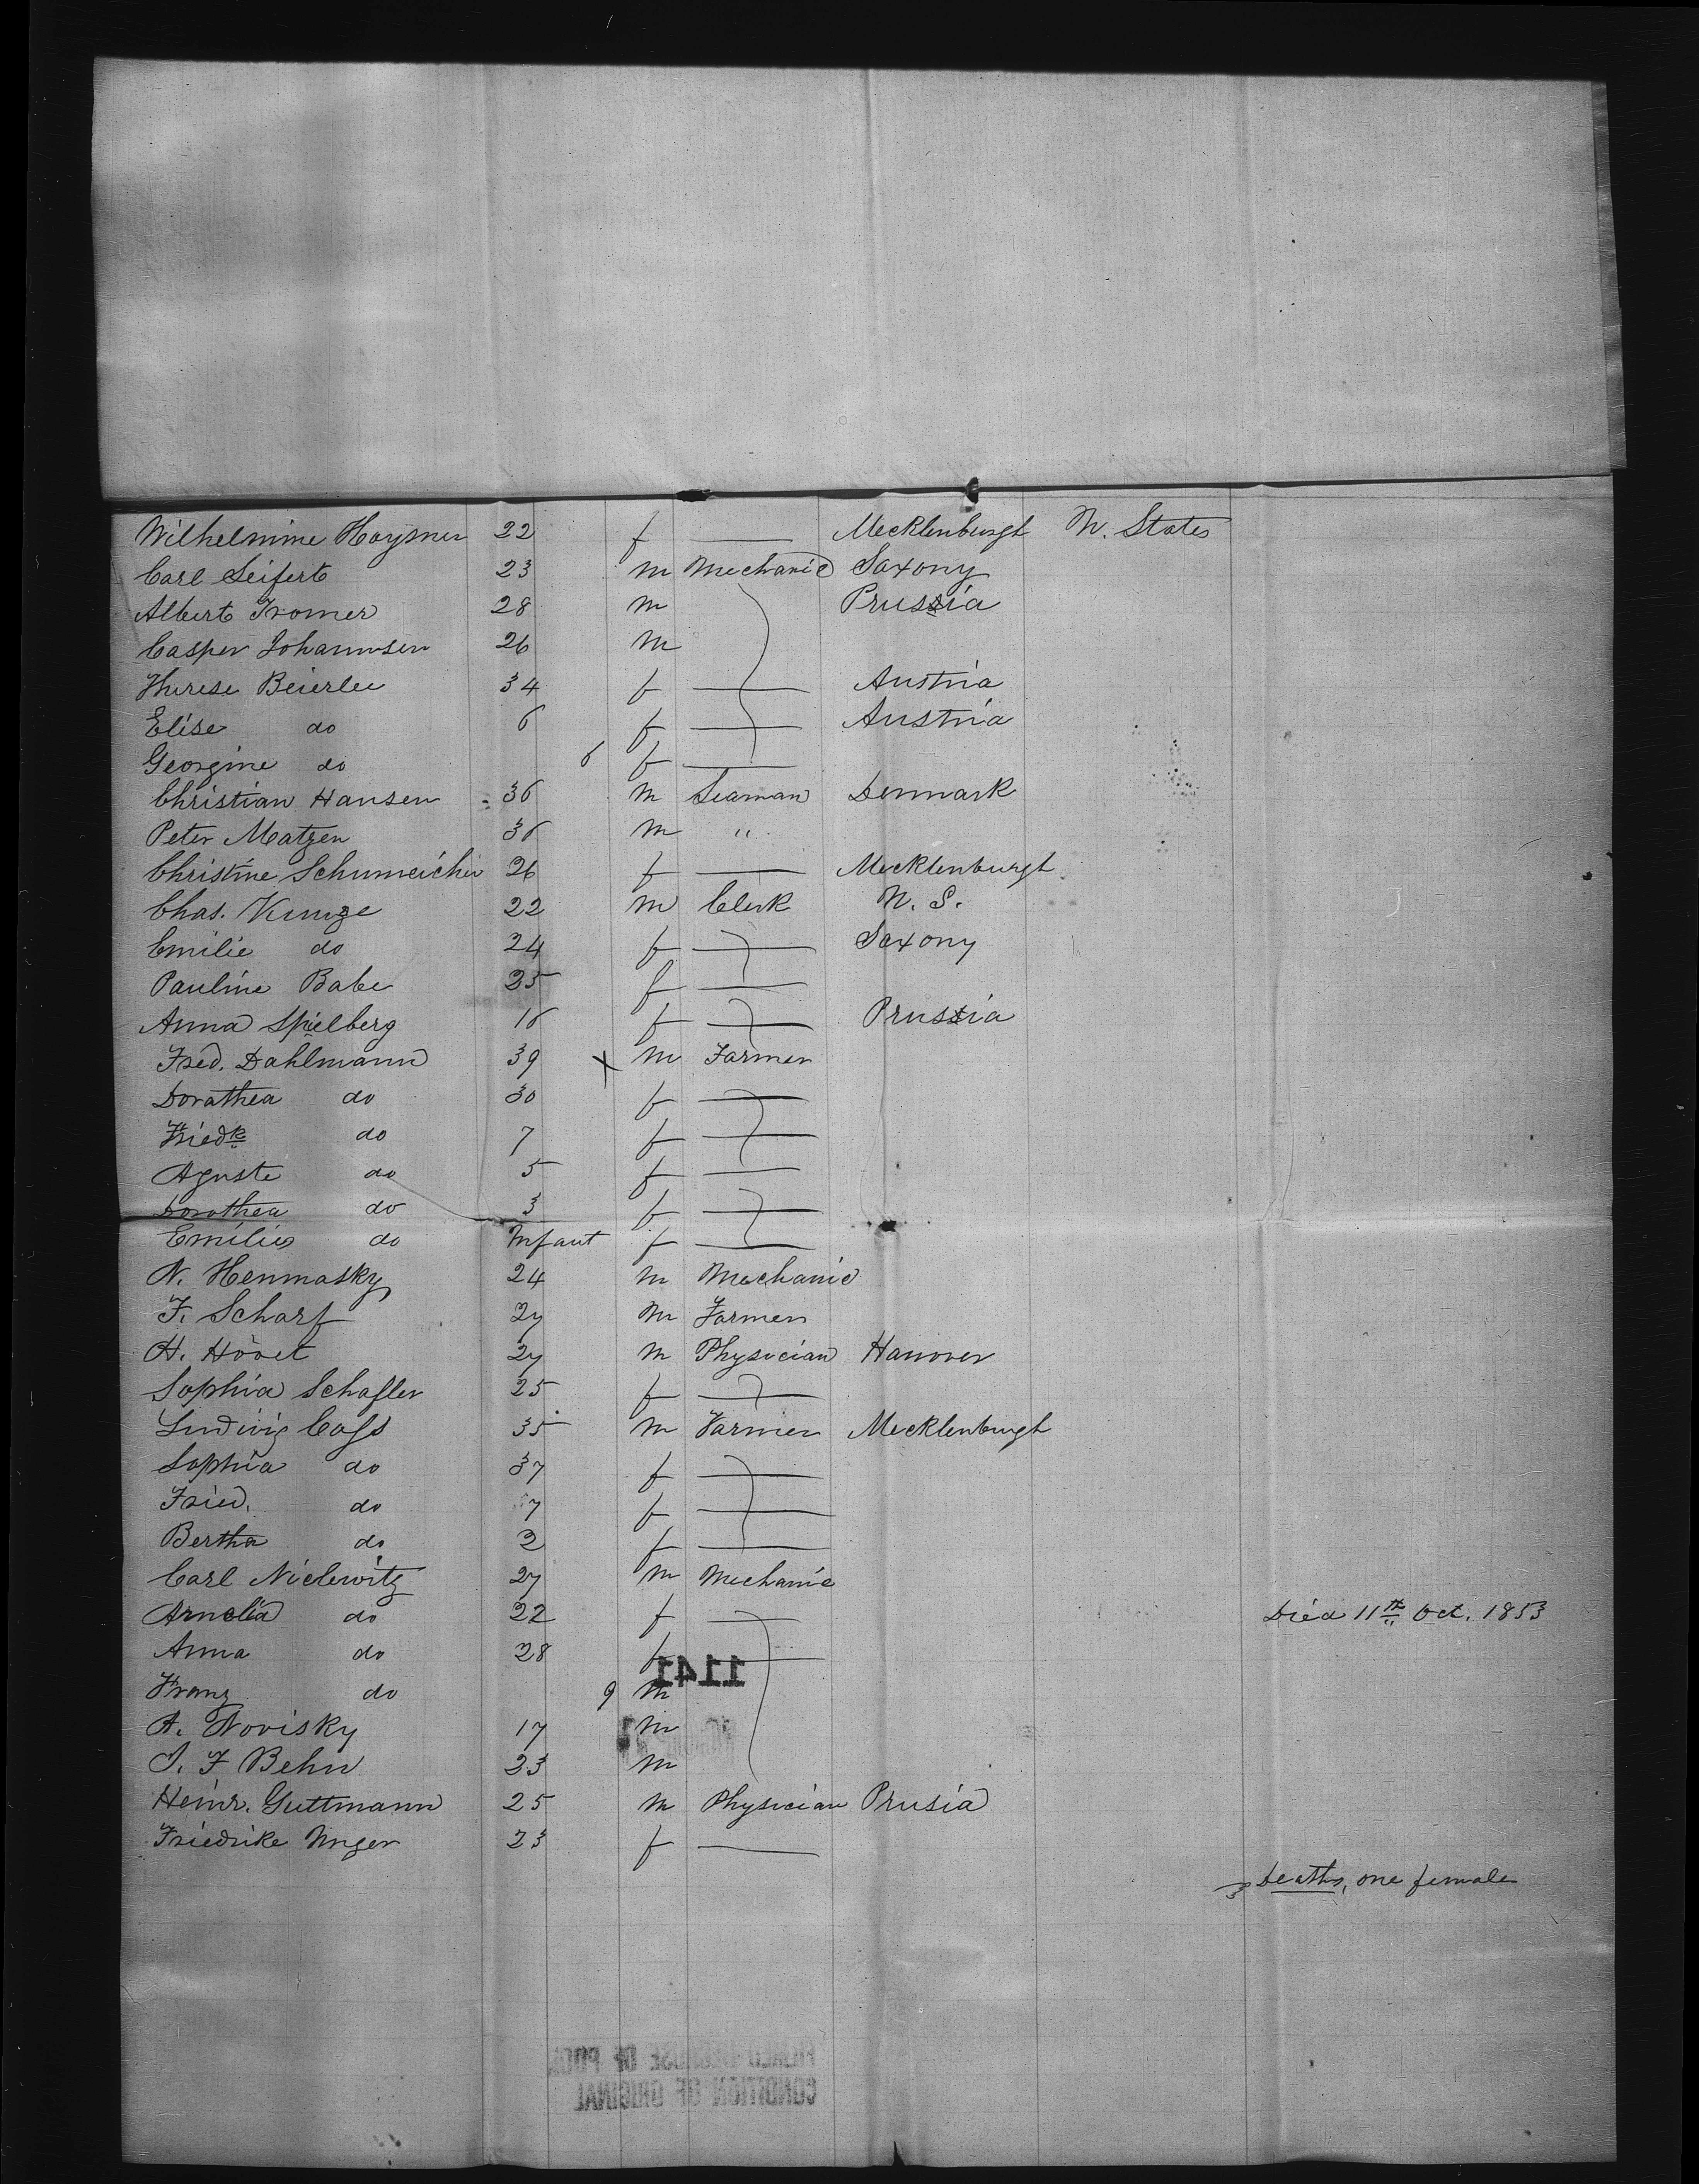 Wilhelmine Hoysner 22 f — Mecklenburgh N. States
Carl Seifert 23 m Mechanic Saxony
Albert Tromer 28 m Prussia
Casper Johannsen 26 m
Therese Beierlee 34 f — Austria
Elise do 6 f — Austria
Georgine do 6 f —
Christian Hansen 36 m Seaman Denmark
Peter Matzen 36 m "
Christine Schumeicher 26 f — Mecklenburgh
Chas. Kunze 22 m Clerk N. S.
Emilie do 24 f — Saxony
Pauline Babe 25 f —
Anna Spielberg 16 f — Prussia
Fred. Dahlmann 39 x m Farmer
Dorathea do 30 f —
Friedke do 7 f —
Aguste do 5 f —
Dorothea do 3 f —
Emilie do Infant f —
N. Henmasky 24 m Mechanic
F. Scharf 27 m Farmer
H. Hövet 27 m Physician Hanover
Sophia Schafler 25 f —
Ludwig Cass 35 m Farmer Mecklenburgh
Sophia do 37 f —
Fried. do 7 f —
Bertha do 2 f —
Carl Niclewitz 27 m Mechanic
Amelia do 22 f — Died 11th Oct. 1853
Anna do 28 f —
1141
Franz do 9 m
A. Novisky 17 m
J. F Behn 23 m
Heinr. Guttmann 25 m Physician Prusia
Friedrike Unger 23 f —
3 Deaths, one female
CONDITION OF ORIGINAL